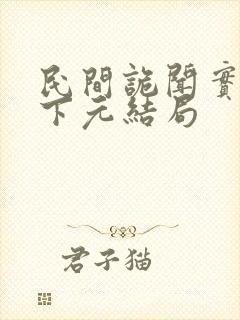 民間詭聞實
下元結局
君子猫